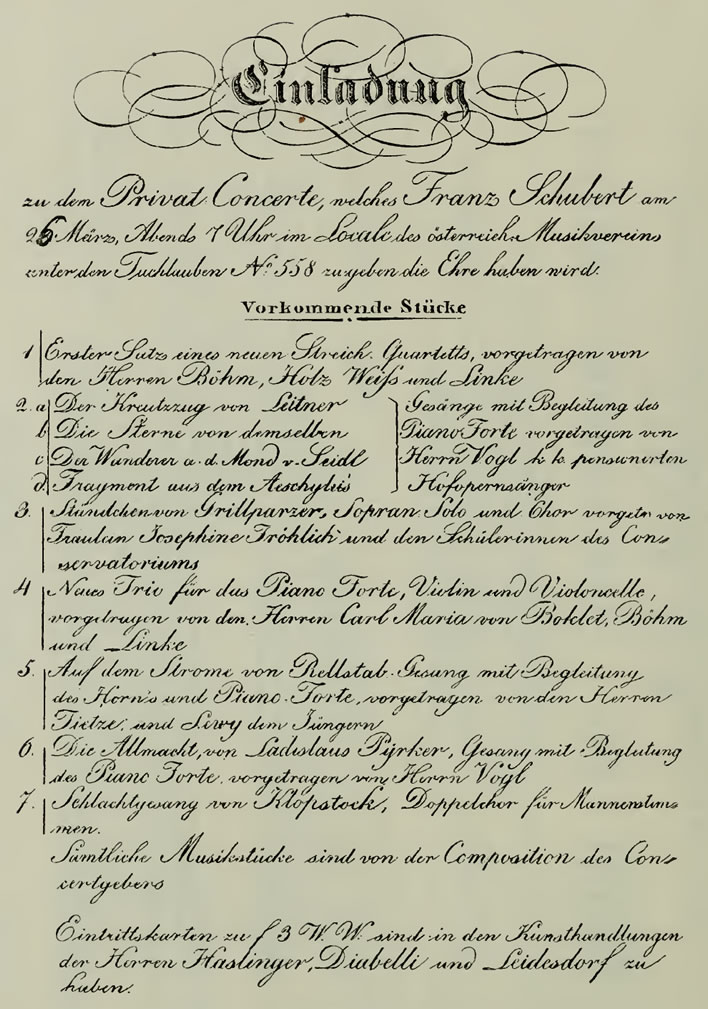 Einladung
zu dem Privat Concerte, welches Franz Schubert am
26 März, Abends 7 Uhr im Locale des österreich. Musikvereins
unter den Tuchlauben No. 558 zu geben die Ehre haben wird.
Vorkommende Stücke
1 Erster Satz eines neuen Streich. Quartetts, vorgetragen von
den Herren Böhm, Holz Weiss und Linke
2. a Der Kreutzzug von Leitner
b Die Sterne von demselben
c Der Wanderer a. d. Mond v. Seidl
d. Fragment aus dem Aeschylus
Gesänge mit Begleitung des
Piano Forte vorgetragen von
Herrn Vogl k. k. pensionierten
Hofopernsänger
3. Ständchen von Grillparzer, Sopran Solo und Chor vorgetr. von
Fräulein Josephine Fröhlich und den Schülerinnen des Con=
servatoriums
4 Neues Trio für das Piano Forte, Violin und Violoncelle,
vorgetragen von den Herren Carl Maria von Boklet, Böhm
und Linke
5. Auf dem Strome von Rellstab. Gesang mit Begleitung
des Horn's und Piano-Forte, vorgetragen von den Herren
Tietze, und Lewy dem Jüngern
6. Die Allmacht, von Ladislaus Pyrker, Gesang mit Begleitung
des Piano Forte, vorgetragen von Herrn Vogl
7. Schlachtgesang von Klopstock, Doppelchor für Männerstim=
men.
Sämtliche Musikstücke sind von der Composition des Con=
certgebers
Eintrittskarten zu f 3 W. W. sind in den Kunsthandlungen
der Herren Haslinger, Diabelli und Leidesdorf zu
haben.